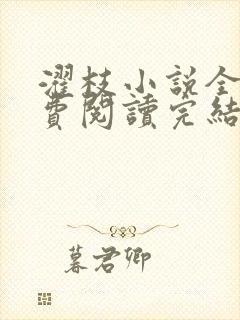 濯枝小說全
費閱讀完結
暮君卿